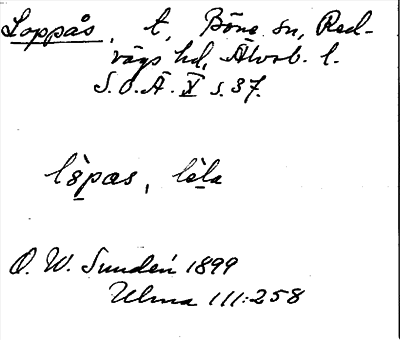 Loppås, t, Böne sn, Red-
vägs hd, Älvsb. l.
S.O.Ä. V s. 37.
lòpas, lèla
O. W. Sundén 1899
Ulma 111:258